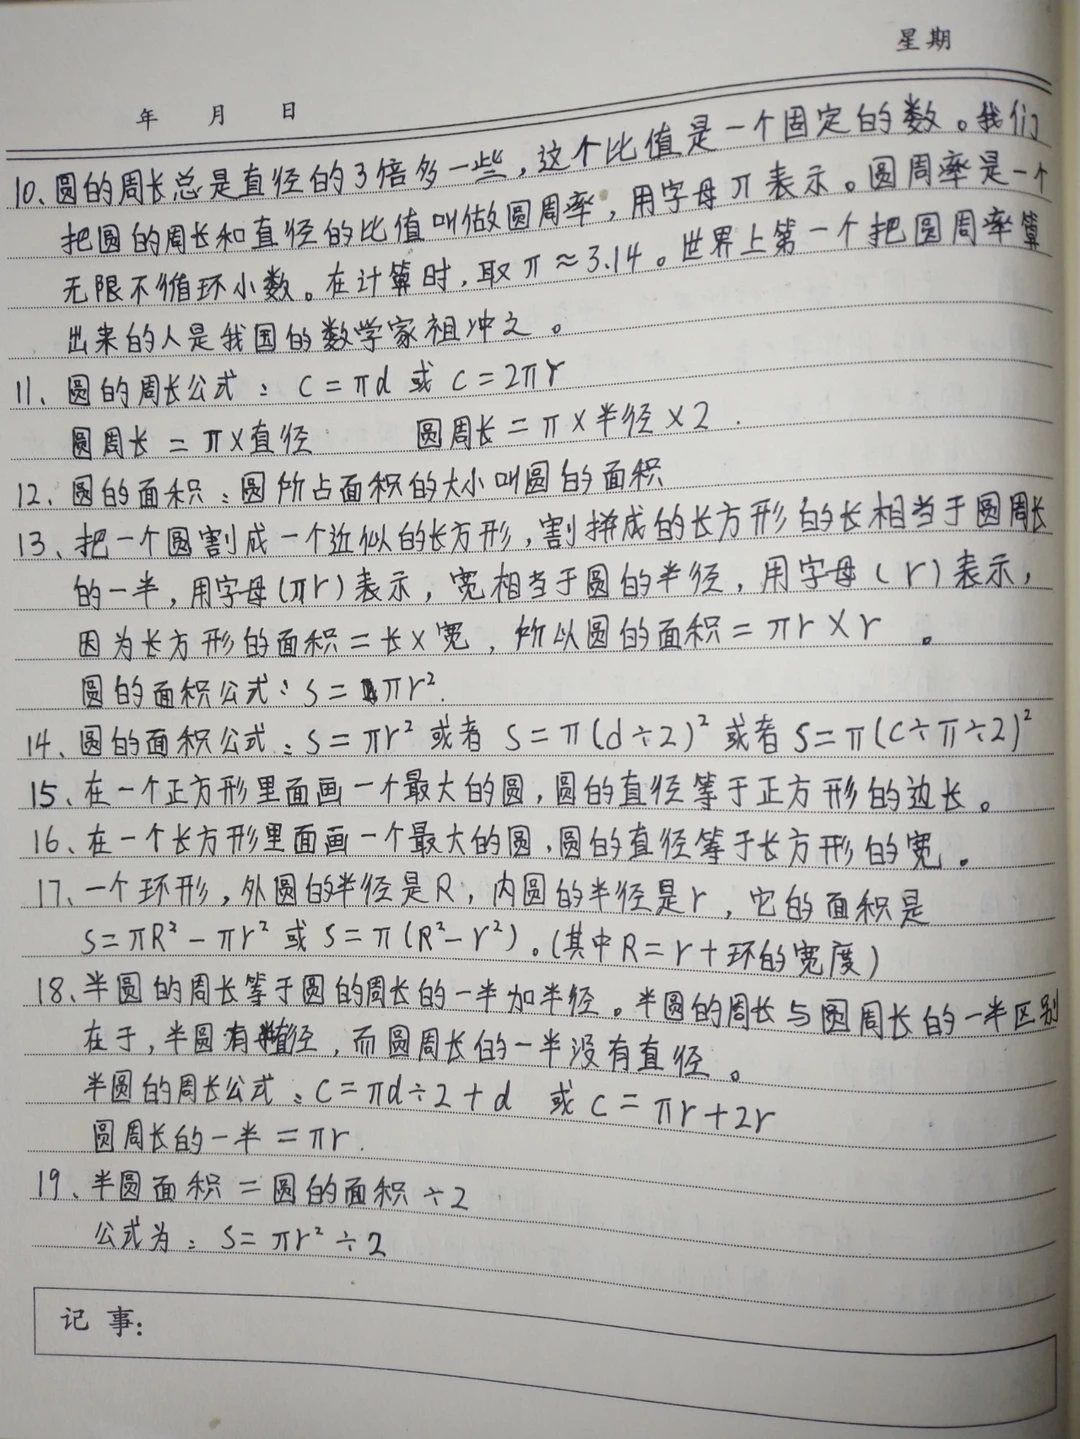 星期
年 月 日
10、圆的周长总是直径的3倍多一些，这个比值是一个固定的数。我们
把圆的周长和直径的比值叫做圆周率，用字母π表示。圆周率是一个
无限不循环小数。在计算时，取π≈3.14。世界上第一个把圆周率算
出来的人是我国的数学家祖冲之。
11、圆的周长公式：C=πd或C=2πr
圆周长=π×直径 圆周长=π×半径×2.
12、圆的面积：圆所占面积的大小叫圆的面积
13、把一个圆割成一个近似的长方形，割拼成的长方形的长相当于圆周长
的一半，用字母(πr)表示，宽相当于圆的半径，用字母(r)表示，
因为长方形的面积=长×宽，所以圆的面积=πr×r。
圆的面积公式：S=πr².
14、圆的面积公式：S=πr²或者S=π(d÷2)²或者S=π(C÷π÷2)²
15、在一个正方形里面画一个最大的圆，圆的直径等于正方形的边长。
16、在一个长方形里面画一个最大的圆，圆的直径等于长方形的宽。
17、一个环形，外圆的半径是R，内圆的半径是r，它的面积是
S=πR²-πr²或S=π(R²-r²)。(其中R=r+环的宽度)
18、半圆的周长等于圆的周长的一半加半径。半圆的周长与圆周长的一半区别
在于，半圆有直径，而圆周长的一半没有直径。
半圆的周长公式：C=πd÷2+d 或C=πr+2r
圆周长的一半=πr.
19、半圆面积=圆的面积÷2
公式为：S=πr²÷2
记事：